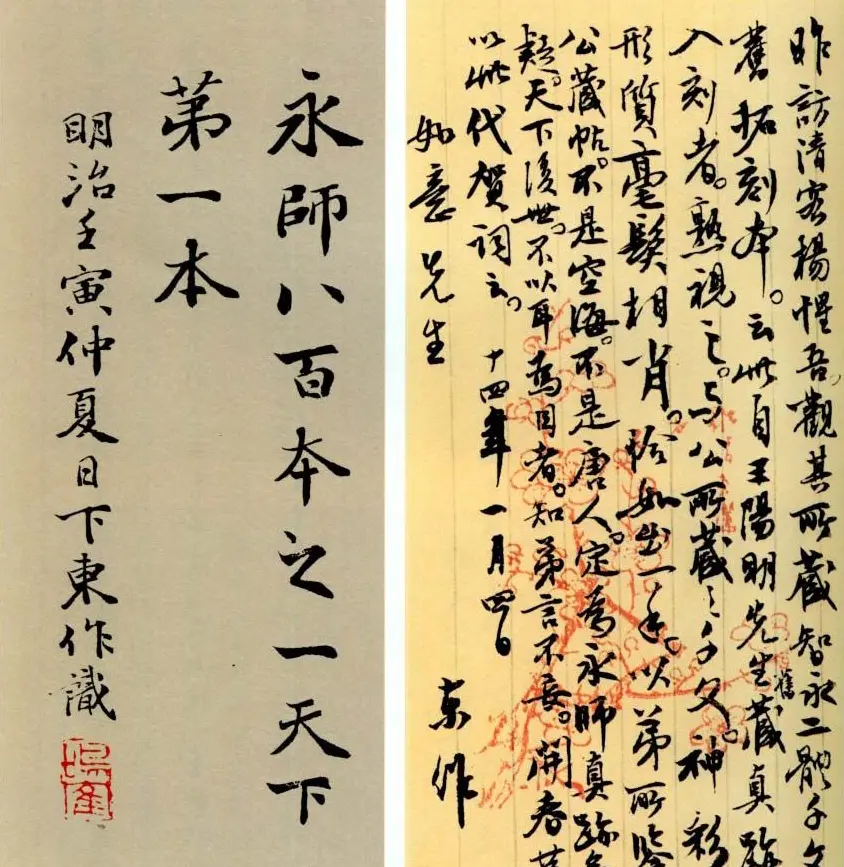 昨訪清客楊惺吾。觀其所藏智永二體千文
舊拓刻本。云此自王陽明先生舊藏真跡
入刻者。熟視之。與公所藏之千文。神彩
形質毫髮相肖。恰如出一手。以弟所鑒
公藏帖。不是空海。不是唐人。定為永師真跡
疑。天下後世。不以耳為目者。知弟言不妄。開春
以此代賀詞云。十四年一月四日 東作
如意先生
永師八百本之一天下
第一本
明治壬寅仲夏日下東作識